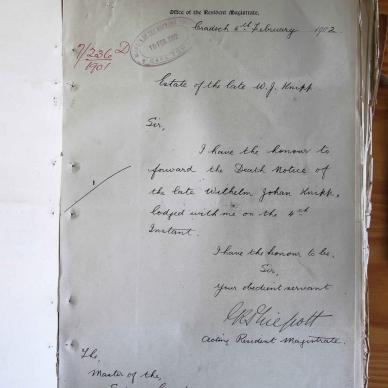 Office of the Resident Magistrate,
Cradock 6th February 1902
7/236 D
1901
10 FEB 1902
Estate of the late W. J. Knipp
Sir,
I have the honour to
forward the Death Notice of
the late Wilhelm Johan Knipp,
lodged with me on the 4th
Instant.
I have the honour to be,
Sir,
Your obedient servant
Acting Resident Magistrate.
The,
Master of the,